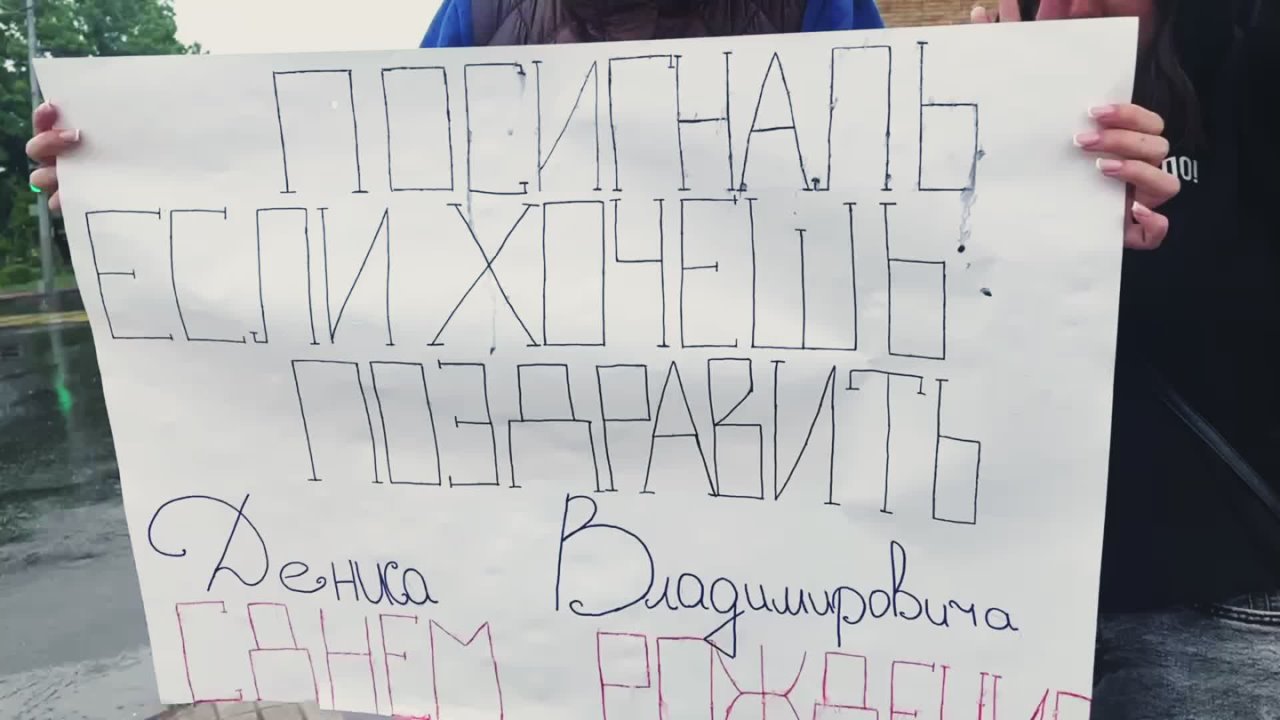 ПОСИГНАЛЬ
ЕСЛИ ХОЧЕШЬ
ПОЗДРАВИТЬ
Дениса Владимировича
С ДНЕМ РОЖДЕНИЯ